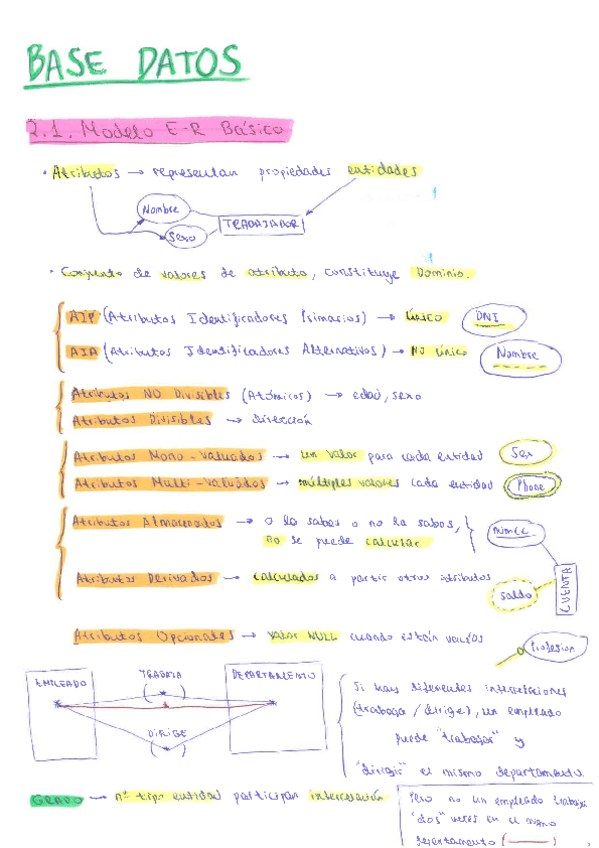 BASE DATOS
2.1. Modelo E-R Básico
· Atributos → representan propiedades entidades
Nombre
TRABAJADOR
Sexo
· Conjunto de valores de atributo, constituye Dominio.
AIP (Atributos Identificadores Primarios) → Único DNI
AIA (Atributos Identificadores Alternativos) → No Único Nombre
Atributos NO Divisibles (Atómicos) → edad, sexo
Atributos Divisibles → dirección
Atributos Mono-valuados → un valor para cada entidad Sex
Atributos Multi-valuados → múltiples valores cada entidad Phone
Atributos Almacenados → o lo sabes o no lo sabes,
no se puede calcular
CUENTA
Atributos Derivados → calculados a partir otros atributos
saldo
Atributos Opcionales → valor NULL cuando están vacíos
Profesion
EMPLEADO TRABAJA DEPARTAMENTO
DIRIGE
Si hay diferentes interrelaciones
(trabaja/dirige), un empleado
puede "trabajar" y
"dirigir" el mismo departamento.
GRADO → nº tipo entidad participan interrelación
Pero no un empleado trabaja
"dos" veces en el mismo
departamento (